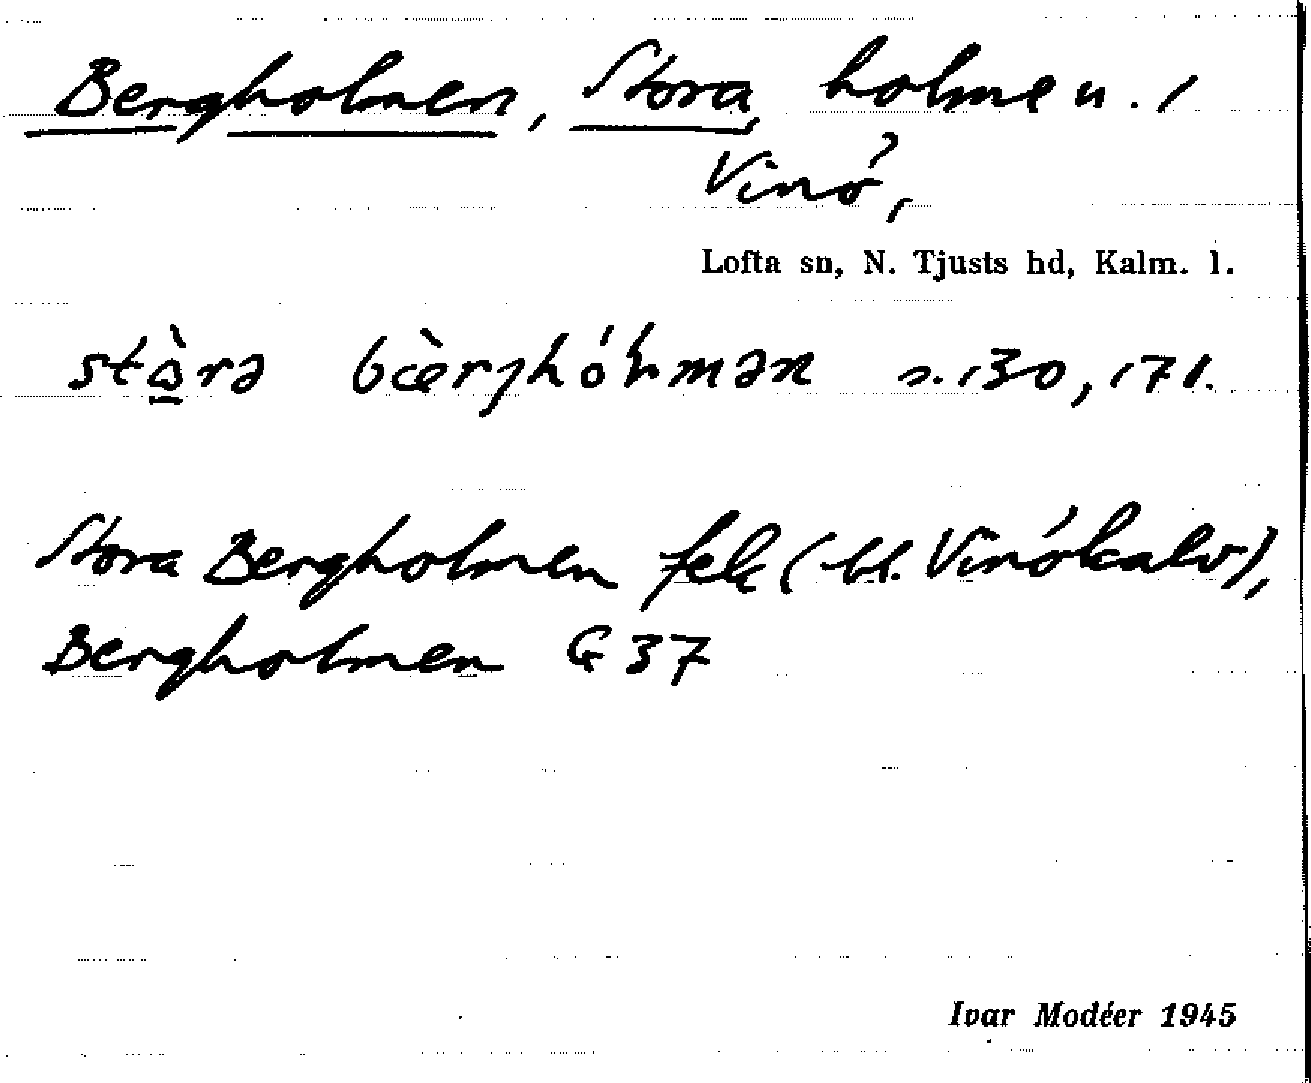 Bergholmen, Stora, holme u. /
Vinö,
Lofta sn, N. Tjusts hd, Kalm. l.
s. 130, 171.
Stora Bergholmen fek (bl. Vinökalv),
Bergholmen G 37
Ivar Modéer 1945